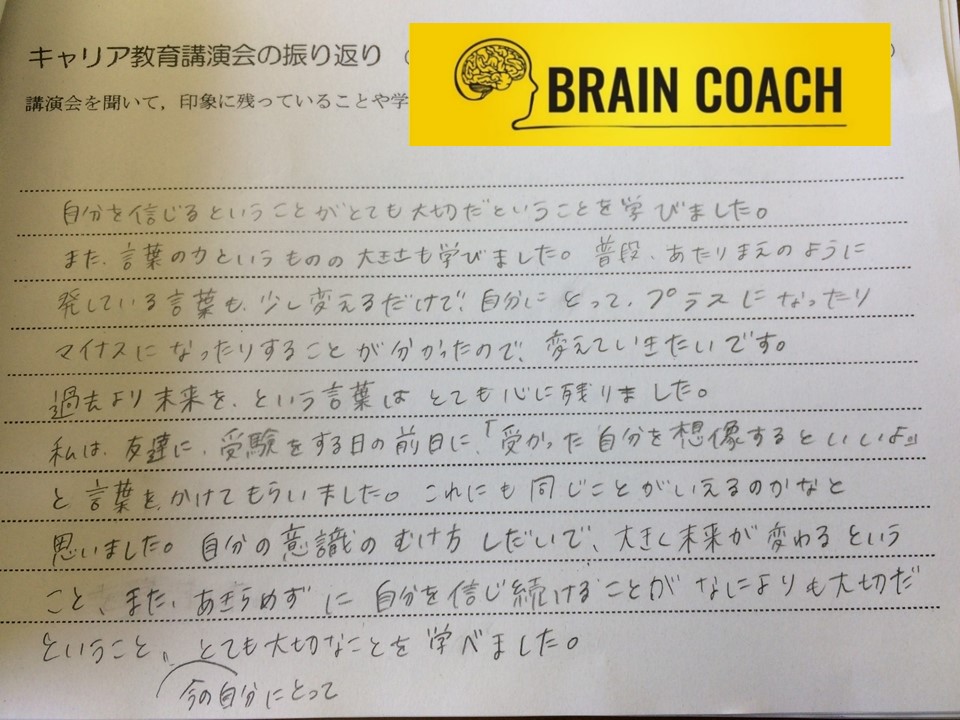 キャリア教育講演会の振り返り (
BRAIN COACH
講演会を聞いて，印象に残っていることや学
自分を信じるということがとても大切だということを学びました。
また、言葉の力というものの大きさも学びました。普段、あたりまえのように
発している言葉も、少し変えるだけで、自分にとって、プラスになったり
マイナスになったりすることが分かったので、変えていきたいです。
過去より未来を、という言葉はとても心に残りました。
私は、友達に、受験をする日の前日に、「受かった自分を想像するといいよ』
と言葉をかけてもらいました。これにも同じことがいえるのかなと
思いました。自分の意識のむけ方しだいで、大きく未来が変わるという
こと、また、あきらめずに自分を信じ続けることがなによりも大切だ
ということ、とても大切なことを学べました。
今の自分にとって